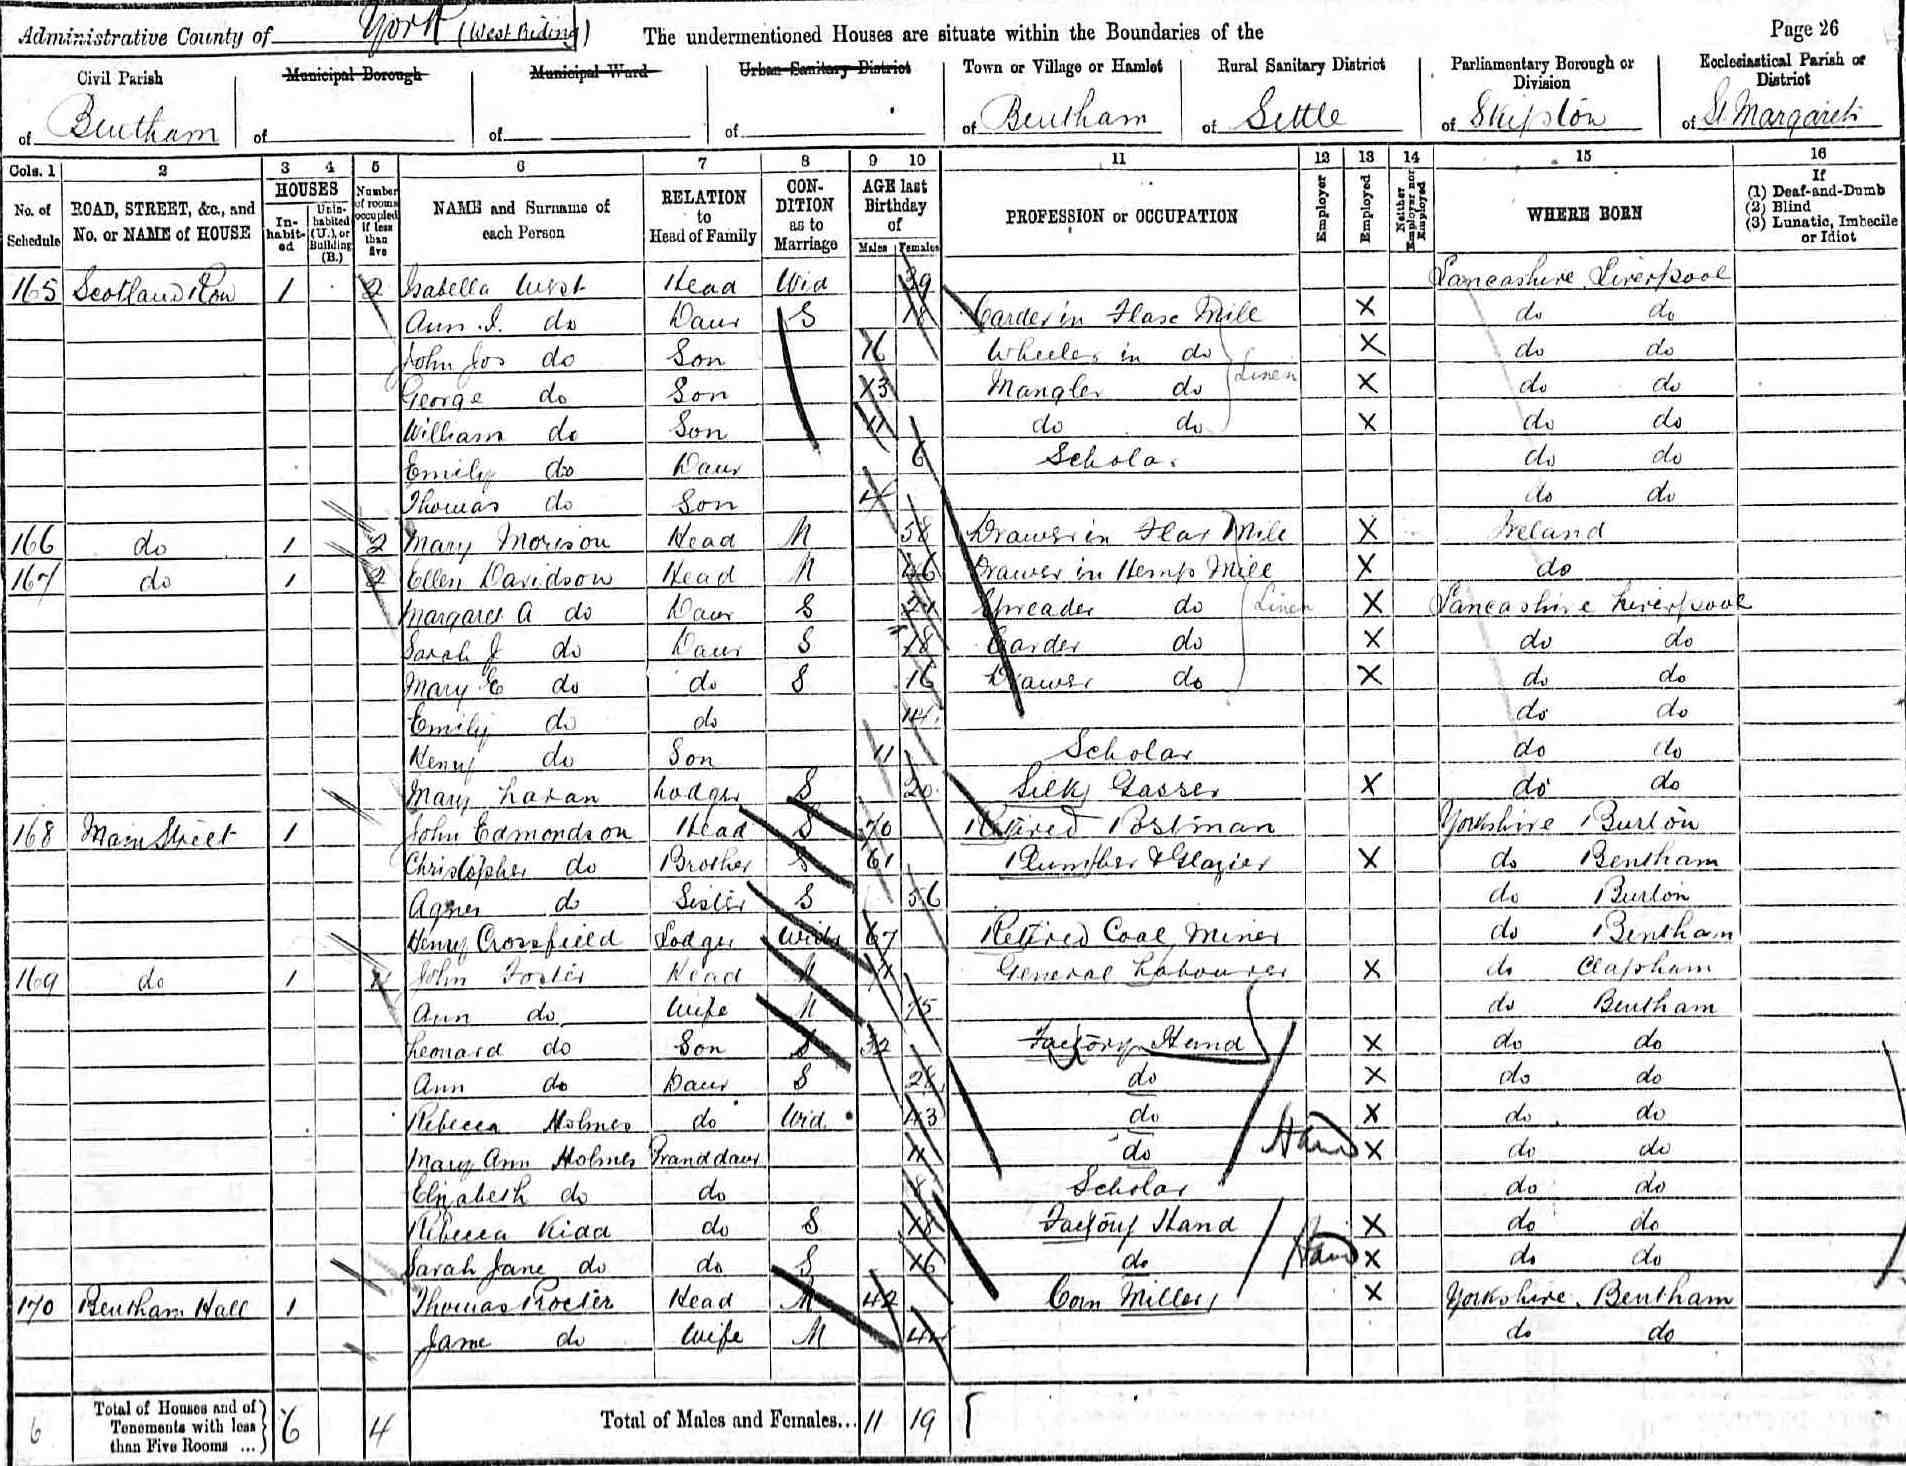 Administrative County of York (West Riding) The undermentioned Houses are situate within the Boundaries of the Page 26
Civil Parish Municipal Borough Municipal Ward Urban Sanitary District Town or Village or Hamlet Rural Sanitary District Parliamentary Borough or Division Ecclesiastical Parish or District
of Bentham of of of of Bentham of Settle of Skipton of St Margarets
Cols. 1 2 3 4 5 6 7 8 9 10 11 12 13 14 15 16
No. of Schedule ROAD, STREET, &c., and No. or NAME of HOUSE HOUSES Inhabited Uninhabited (U.), or Building (B.) Number of rooms occupied if less than five NAME and Surname of each Person RELATION to Head of Family CONDITION as to Marriage AGE last Birthday of Males Females PROFESSION or OCCUPATION Employer Employed Neither Employer nor Employed WHERE BORN If (1) Deaf-and-Dumb (2) Blind (3) Lunatic, Imbecile or Idiot
165 Scotland Row 1 2 Isabella West Head Wid 39 Lancashire Liverpool
Ann I. do Daur S 18 Carder in Flax Mill X do do
John Jos do Son 16 Wheeler in do X do do
George do Son 13 Mangler do Linen X do do
William do Son 11 do do X do do
Emily do Daur 6 Scholar do do
Thomas do Son 4 do do
166 do 1 2 Mary Morison Head M 58 Drawer in Flax Mill X Ireland
167 do 1 2 Ellen Davidson Head M 46 Drawer in Hemp Mill X do
Margaret A do Daur S Spreader do Linen X Lancashire Liverpool
Sarah J do Daur S 18 Carder do X do do
Mary E do do S 16 Drawer do X do do
Emily do do 14 do do
Henry do Son 11 Scholar do do
Mary Lodger S 20 Silk Gasser X do do
168 Main Street 1 John Edmondson Head S 70 Retired Postman Yorkshire Burton
Christopher do Brother S 61 Plumber & Glazier X do Bentham
Agnes do Sister S 56 do Burton
Henry Crossfield Lodger Widr 67 Retired Coal Miner do Bentham
169 do 1 4 John Foster Head M 71 General Labourer X do Clapham
Ann do Wife M 75 do Bentham
Leonard do Son S 32 Factory Hand X do do
Ann do Daur S 28 do X do do
Rebecca Holmes do Wid. 43 do X do do
Mary Ann Holmes Granddaur 11 do X do do
Elizabeth do do 8 Scholar do do
Rebecca Kidd do S 18 Factory Hand X do do
Sarah Jane do do S 16 do X do do
170 Bentham Hall 1 Thomas Procter Head M 42 Corn Miller X Yorkshire Bentham
Jane do Wife M do do
6 Total of Houses and of Tenements with less than Five Rooms ... 6 4 Total of Males and Females... 11 19